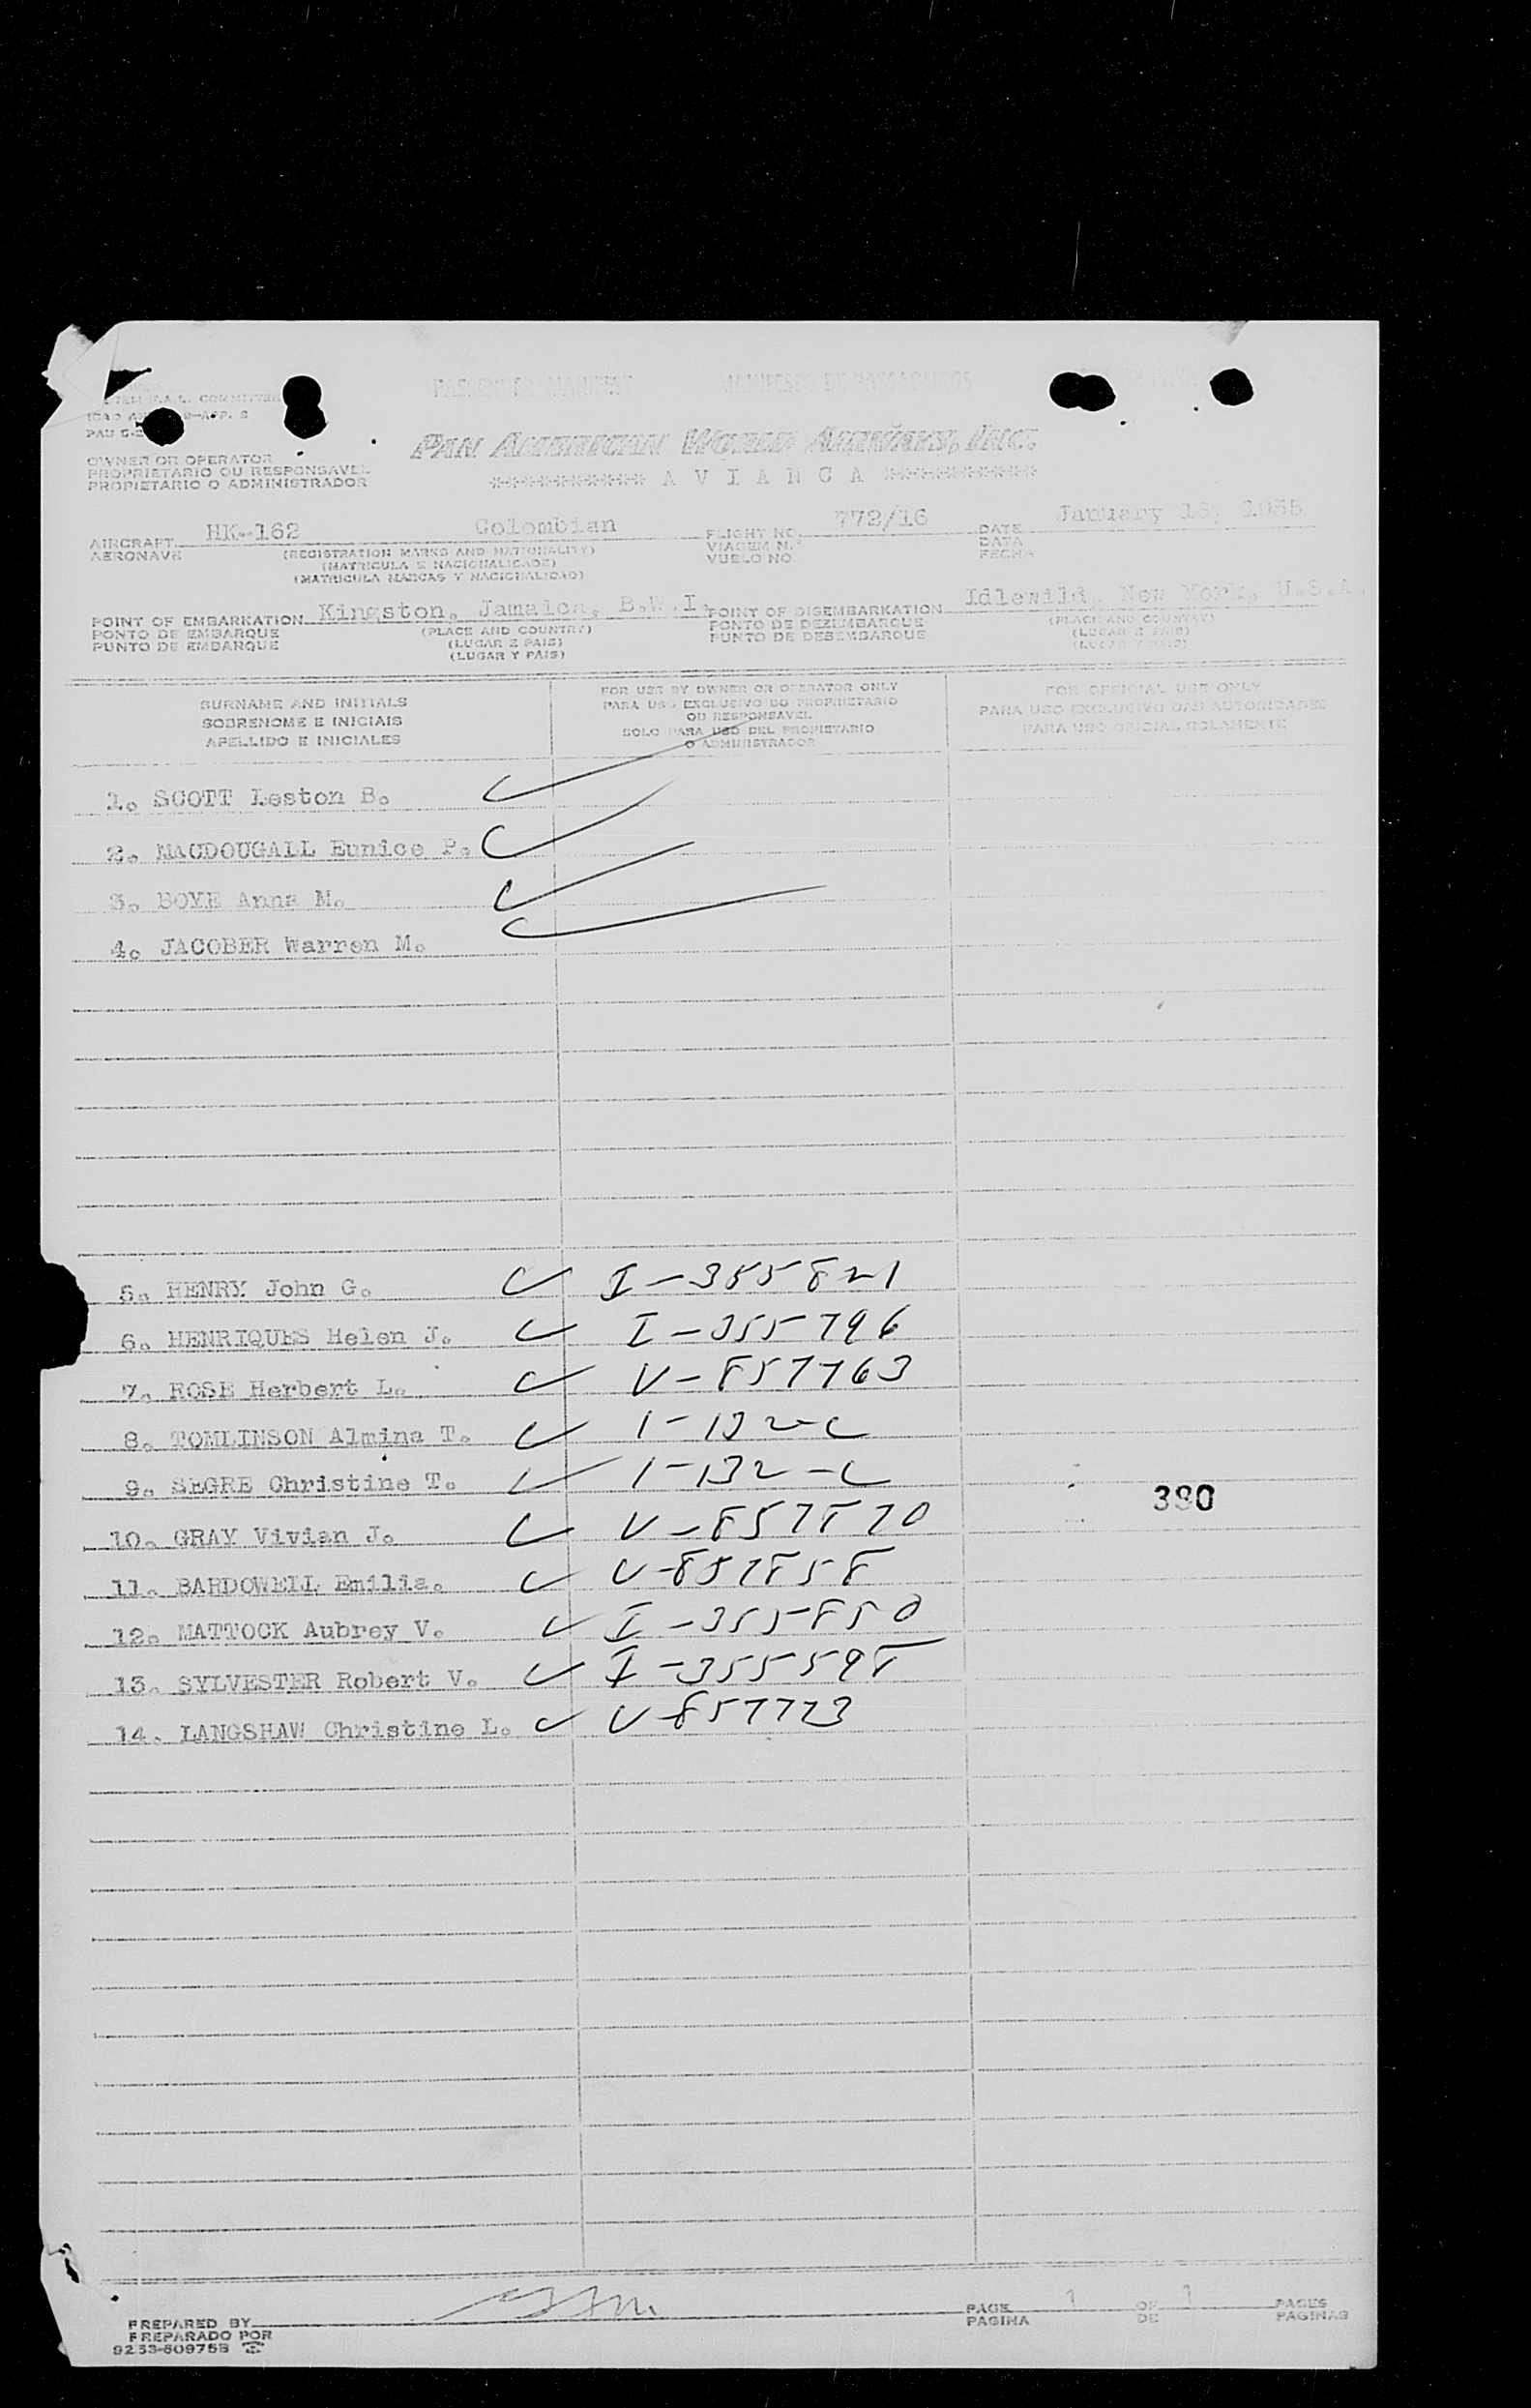 PASSENGER MANIFEST MANIFESTO DE PASSAGEIROS
OWNER OR OPERATOR
PROPRIETARIO OU RESPONSAVEL
PROPIETARIO O ADMINISTRADOR
PAN AMERICAN WORLD AIRWAYS, INC.
********** A V I A N C A **********
AIRCRAFT HK-162 Colombian FLIGHT NO. 772/16 DATE January
AERONAVE (REGISTRATION MARKS AND NATIONALITY) VIAGEM N. DATA
(MATRICULA E NACIONALIDADE) VUELO NO. FECHA
(MATRICULA MARCAS Y NACIONALIDAD)
POINT OF EMBARKATION Kingston, Jamaica, B.W.I. POINT OF DISEMBARKATION Idlewild, New York, U.S.A.
PONTO DE EMBARQUE (PLACE AND COUNTRY) PONTO DE DEZEMBARQUE (PLACE AND COUNTRY)
PUNTO DE EMBARQUE (LUGAR E PAIS) PUNTO DE DESEMBARQUE (LUGAR E PAIS)
(LUGAR Y PAIS) (LUGAR Y PAIS)
SURNAME AND INITIALS
SOBRENOME E INICIAIS
APELLIDO E INICIALES
FOR USE BY OWNER OR OPERATOR ONLY
PARA USO EXCLUSIVO DO PROPRIETARIO
OU RESPONSAVEL
SOLO PARA USO DEL PROPIETARIO
O ADMINISTRADOR
FOR OFFICIAL USE ONLY
PARA USO EXCLUSIVO DAS AUTORIDADES
PARA USO OFICIAL SOLAMENTE
1. SCOTT Leston B.
2. MACDOUGALL Eunice P.
3. BOYE Anna M.
4. JACOBER Warren M.
5. HENRY John G. I-355821
6. HENRIQUES Helen J. I-355796
7. ROSE Herbert L. V-857763
8. TOMLINSON Almina T. 1-132-C
9. SEGRE Christine T. 1-132-C
380
10. GRAY Vivian J. V-857870
11. BARDOWELL Emilia. V-857858
12. MATTOCK Aubrey V. I-355850
13. SYLVESTER Robert V. I-355598
14. LANGSHAW Christine L. V-857723
PREPARED BY PAGE 1 OF 1 PAGES
PREPARADO POR PAGINA DE PAGINAS